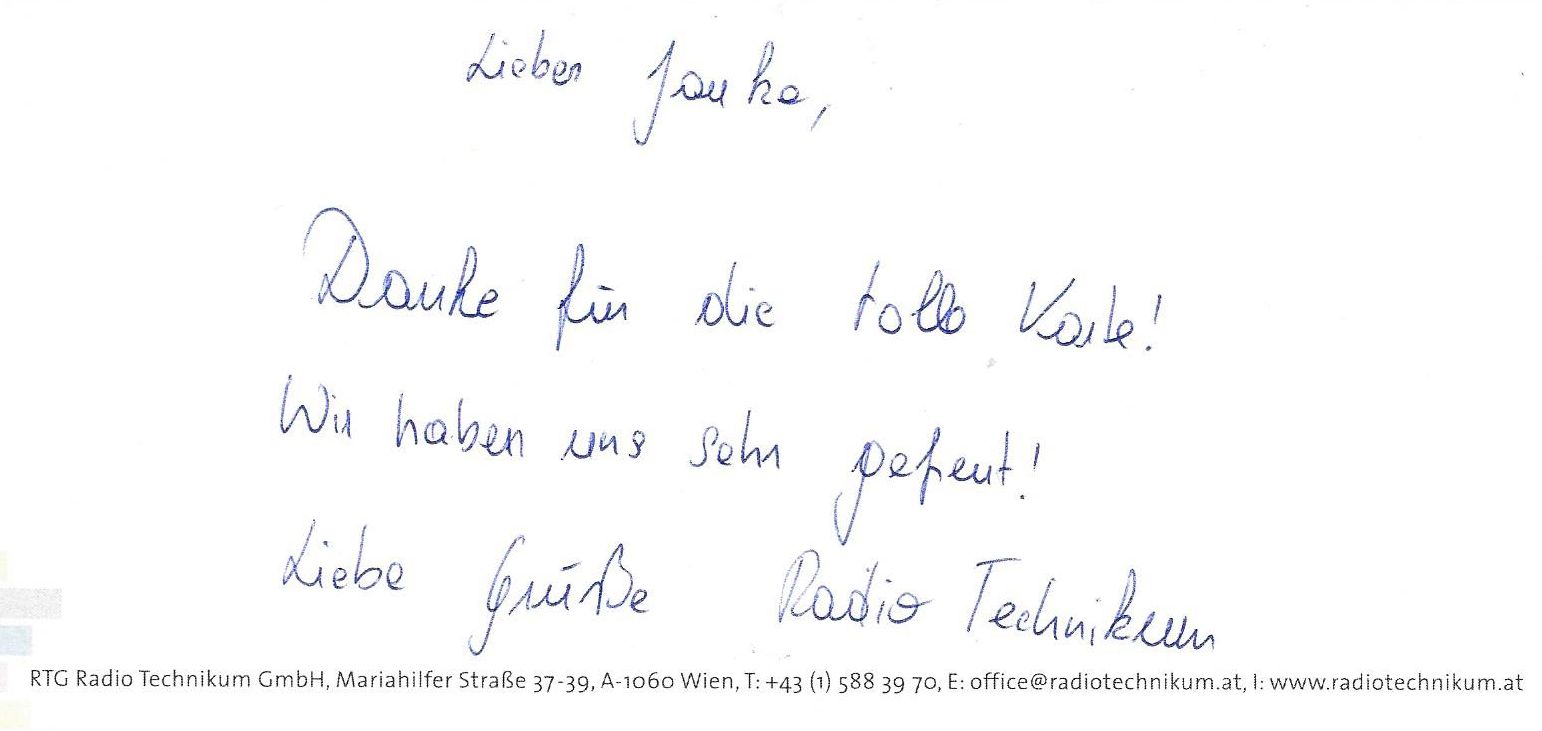 Lieber Janko,
Danke für die tolle Karte!
Wir haben uns sehr gefreut!
Liebe Grüße Radio Technikum
RTG Radio Technikum GmbH, Mariahilfer Straße 37-39, A-1060 Wien, T: +43 (1) 588 39 70, E: office@radiotechnikum.at, I: www.radiotechnikum.at